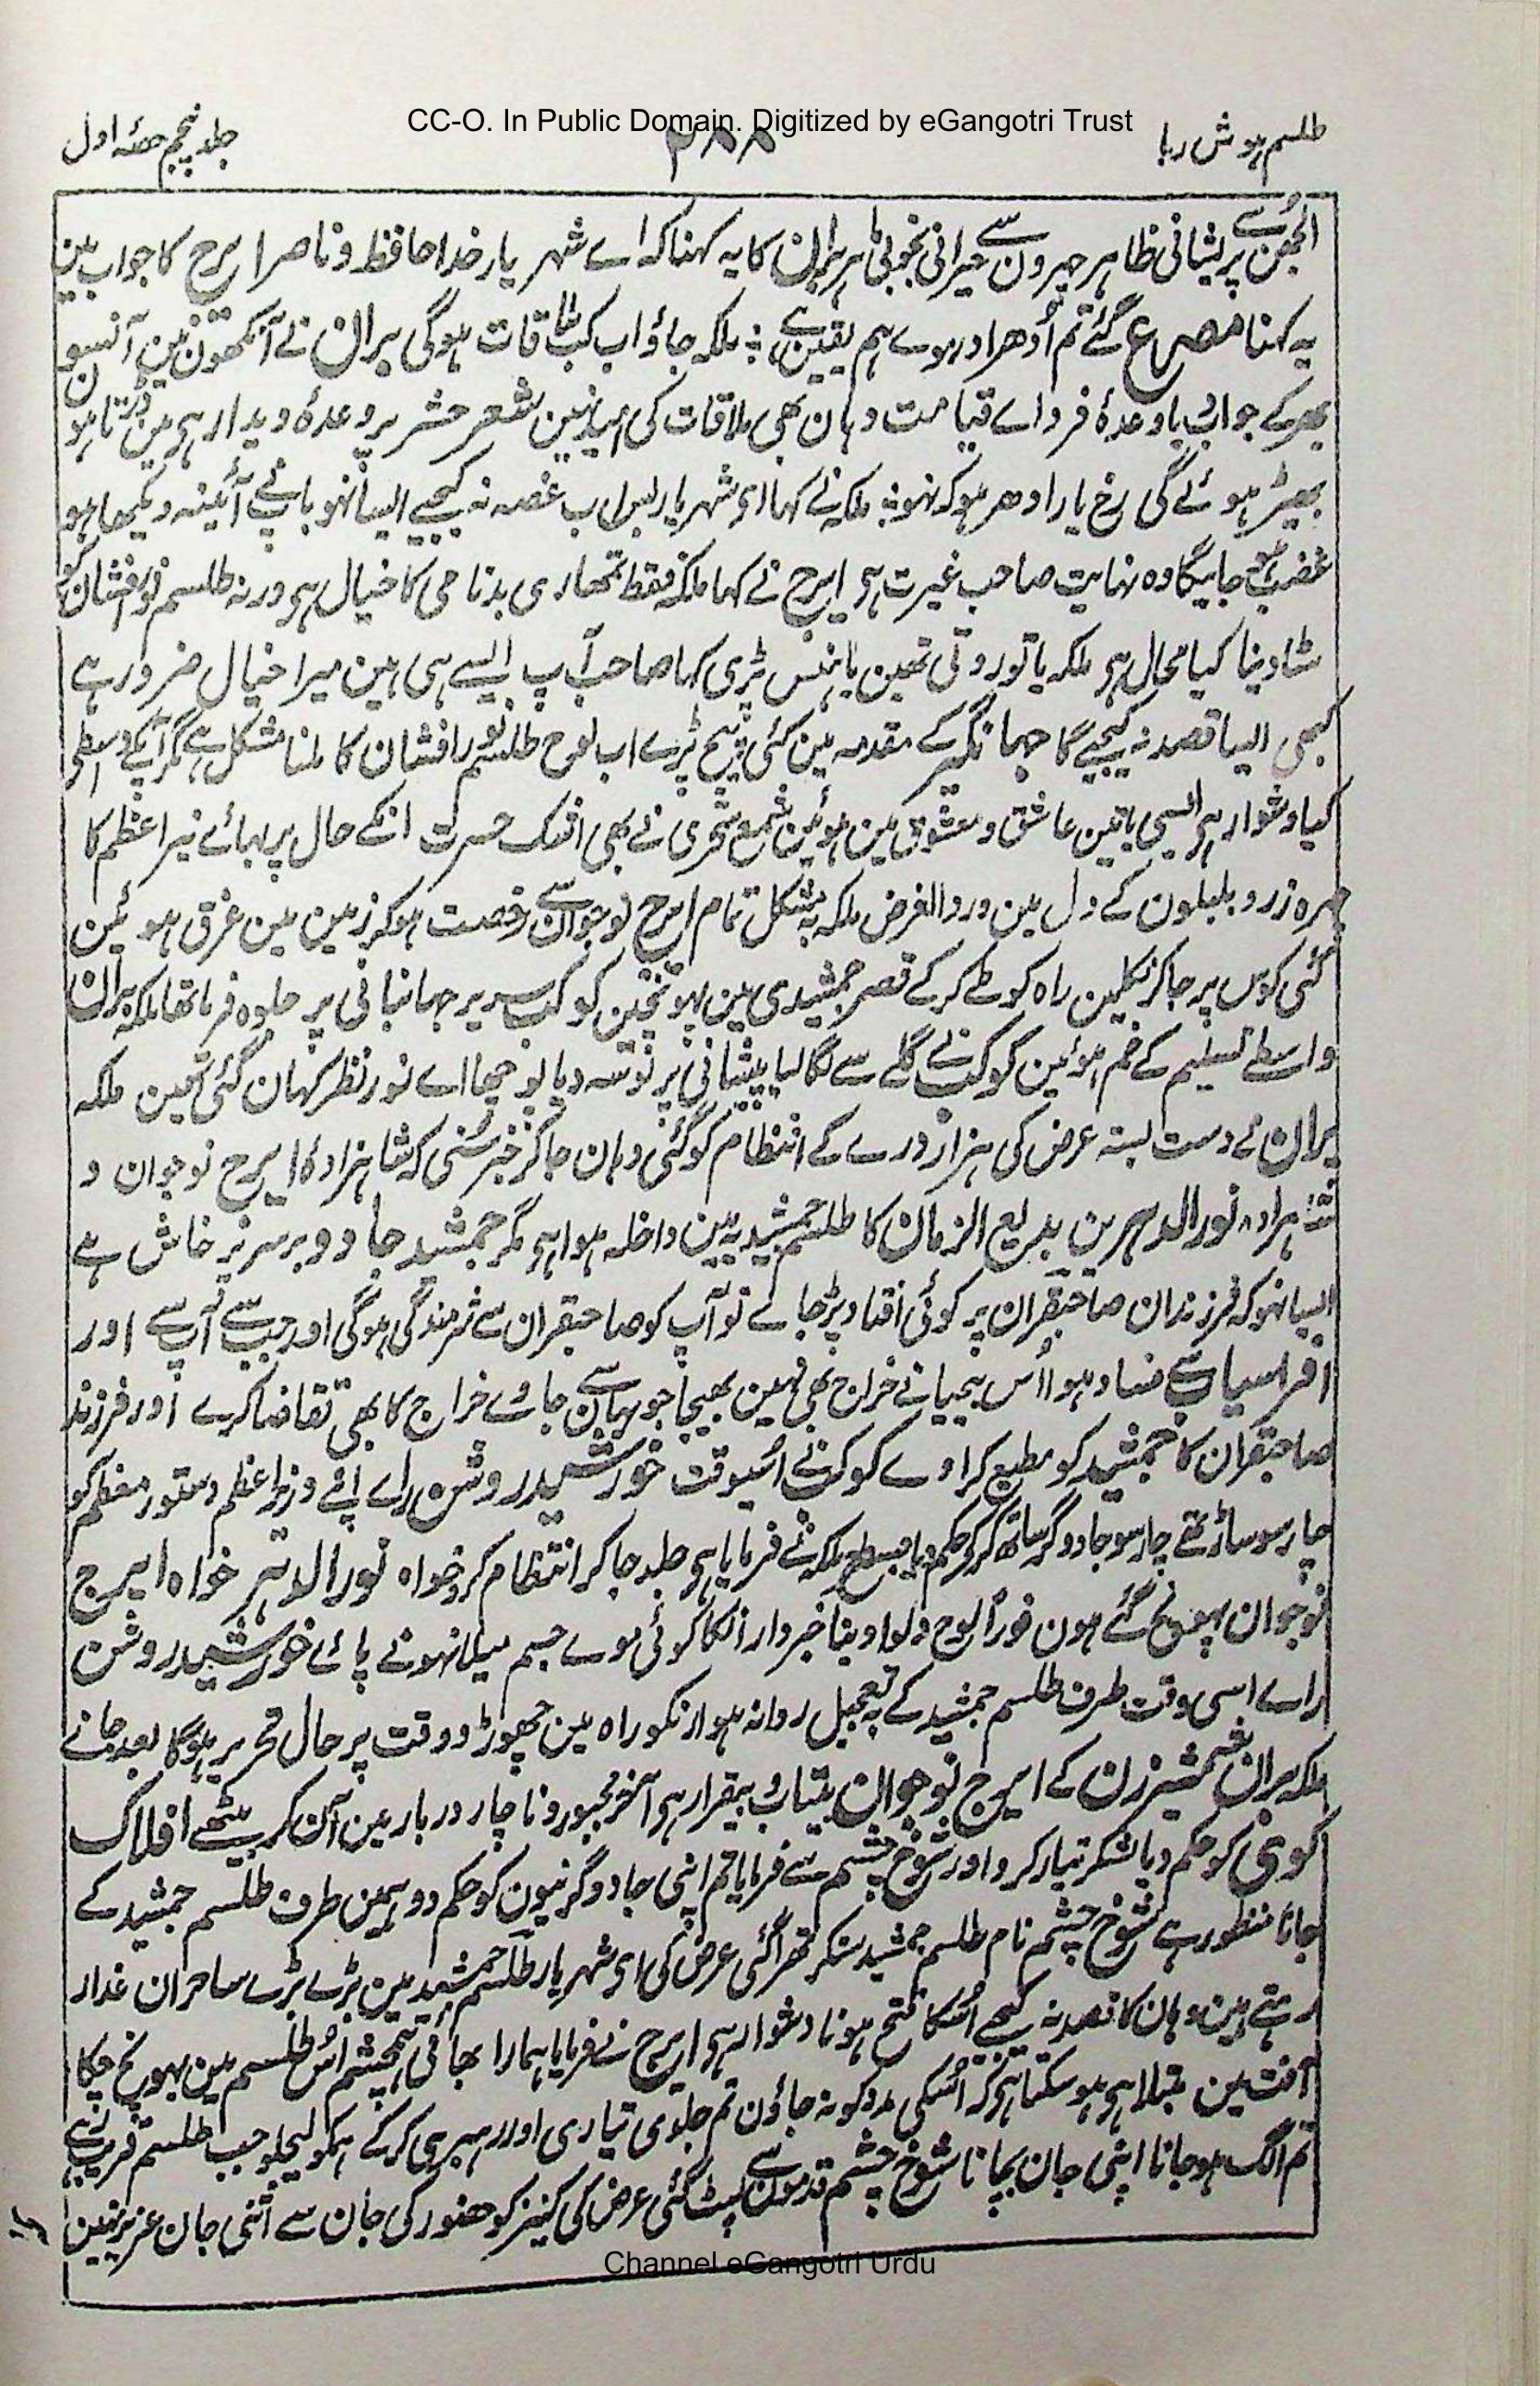 CC-O. In Public Domain. Digitized by eGangotri Trust
طلسم ہوش ربا
۲۸۸
جلد پنجم حصۂ اول
الجھن سے پریشانی ظاہر چہرون سے حیرانی بخوبی باہر بران کا یہ کہنا کہ اے شہر یار خدا حافظ و ناصر ایرج کا جواب مین
یہ کہنا مصرع گئے تم اُدھر ادھر موے ہم یقین ہے ؛ ملکہ جاؤ اب کب ملاقات ہوگی بران نے آنکھون مین آنسو
بھر کے جواب دیا وعدۂ فرداے قیامت وہان بھی ملاقات کی امید نہین شعر حشر پر وعدۂ دیدار ہی مین ڈرتا ہون
بھیڑ ہوئے گی رخ یار ادھر ہو کہ نہو ؛ ملکہ نے کہا ای شہر یار بس اب غصہ نہ کیجیے ایسا نہو باپنے آئینہ دیکھا ہو
غضب ہو جائیگا وہ نہایت صاحب غیرت ہی ایرج نے کہا ملکہ فقط تمھاری بدنامی کا خیال ہی ورنہ طلسم نور افشان کو
مٹا دینا کیا محال ہی ملکہ یا تو روتی تھین یا ہنس پڑی کہا صاحب آپ ایسے ہی ہین میرا خیال ضرور ہے
کبھی ایسا قصد نہ کیجیے گا جہانگیر کے مقدمہ مین کئی پیچ پڑے اب لوح طلسم نور افشان کا ملنا مشکل ہے مگر آپکے واسطے
کیا دشوار ہی ایسی باتین عاشق و معشوق مین ہوئین شمع سحری نے بھی اشک حسرت انکے حال پر بہائے نیر اعظم کا
چہرہ زرد بلبلون کے دل مین درد الغرض ملکہ بہ مشکل تمام ایرج نوجوان سے رخصت ہو کر زمین مین غرق ہوئین
کئی کوس پر جا کر نکلین راہ کو طے کر کے قصر جمشیدی مین پہونچین کوکب سریر جہانبانی پر جلوہ فرما تھا ملکہ بران
واسطے تسلیم کے خم ہوئین کوکب نے گلے سے لگا لیا پیشانی پر بوسہ دیا پوچھا اے نور نظر کہان گئی تھین ملکہ
بران نے دست بستہ عرض کی ہزار درے کے انتظام کو گئی وہان جا کر خبر سُنی کہ شاہزادہ ایرج نوجوان و
شاہزادہ نور الدہر بن بدیع الزمان کا طلسم جمشید یہ مین داخلہ ہوا ہی مگر جمشید جادو برسر پرخاش ہے
ایسا نہو کہ فرزندان صاحبقران پر کوئی افتاد پڑ جائے تو آپ کو صاحبقران سے شرمندگی ہوگی اور جب سے آپ سے اور
افراسیاب سے فساد ہوا اُس بیحیا نے خراج بھی نہین بھیجا جو یہان سے جاوے خراج کا بھی تقاضا کرے اور فرزند
صاحبقران کا جمشید کو مطیع کراوے کوکب نے اُسیوقت خورشید روشن راے اپنے وزیر اعظم دستور معظم کو
چار سو ساز تھے چار سو جادوگر ساتھ کر کے حکم دیا جسطرح ملکہ نے فرمایا ہی جلد جا کر انتظام کرو خواہ نور الدہر خواہ ایرج
نوجوان پہونچ گئے ہون فوراً لوح دلوا دینا خبردار انکا کوئی موے جسم میلا نہونے پائے خورشید روشن
راے اسی وقت طرف طلسم جمشید کے بہ تعجیل روانہ ہوا انکو راہ مین چھوڑو وقت پر حال تحریر ہوگا بعد جانے
ملکہ بران شمشیر زن کے ایرج نوجوان بیتاب و بیقرار ہی آخر مجبور و ناچار دربار مین آن کر بیٹھے افلاک
کوہی کو حکم دیا لشکر تیار کرو اور شوخ چشم سے فرمایا تم اپنی جادوگرنیون کو حکم دو ہمین طرف طلسم جمشید کے
جانا منظور ہے شوخ چشم نام طلسم جمشید سنکر تھرا گئی عرض کی ای شہریار طلسم جمشید مین بڑے بڑے ساحران غدار
رہتے ہین وہان کا قصد نہ کیجیے اُسکا فتح ہونا دشوار ہی ایرج نے فرمایا ہمارا بھائی ہمچشم اُس طلسم مین پہونچ چکا
آفت مین مبتلا ہی ہو سکتا ہی کہ اُسکی مدد کو نہ جاؤن تم جلدی تیاری اور رہبری کر کے ہمکو لیچلو جب طلسم قریب رہے
تم الگ ہو جانا اپنی جان بچانا شوخ چشم قدمون سے لپٹ گئی عرض کی کنیز کو حضور کی جان سے اپنی جان عزیز نہین
Channel eGangotri Urdu